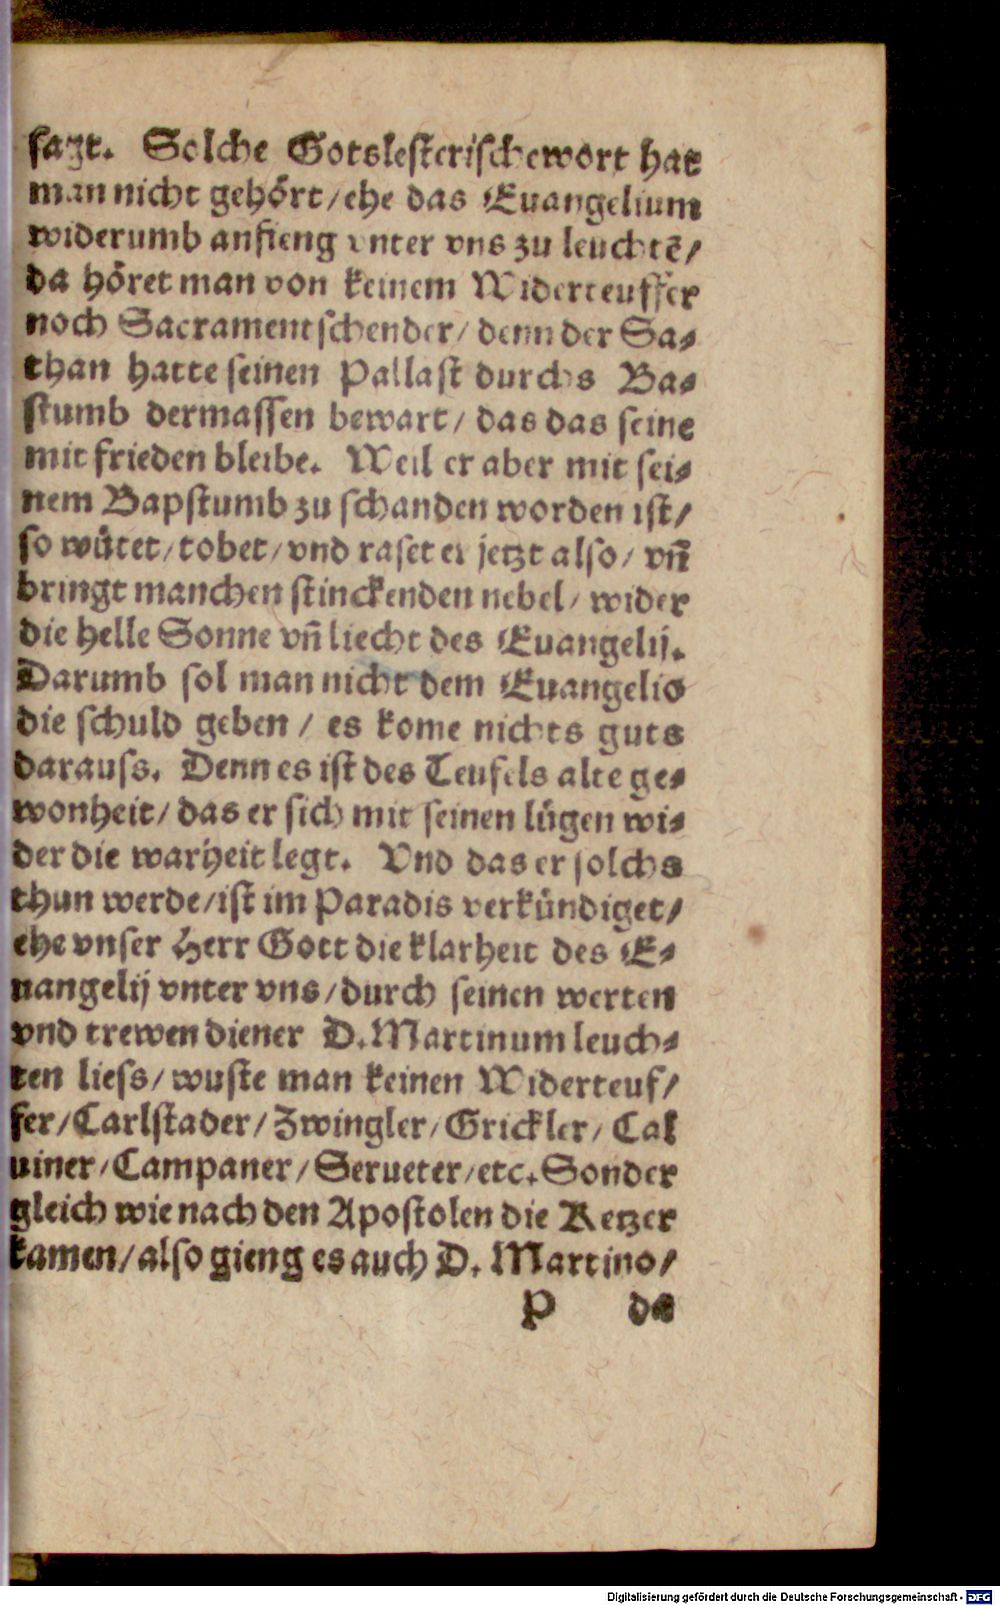 sagt. Solche Gotslesterische wort hat
man nicht gehört/ehe das Euangelium
widerumb anfieng vnter vns zu leuchtē/
da höret man von keinem Widerteuffer
noch Sacramentschender/denn der Sa-
than hatte seinen Pallast durchs Ba-
stumb dermassen bewart/das das seine
mit frieden bleibe. Weil er aber mit sei-
nem Bapstumb zu schanden worden ist/
so wütet/tobet/vnd raset er jetzt also/vn̄
bringt manchen stinckenden nebel/wider
die helle Sonne vn̄ liecht des Euangelij.
Darumb sol man nicht dem Euangelio
die schuld geben/es kome nichts guts
darauss. Denn es ist des Teufels alte ge-
wonheit/das er sich mit seinen lügen wi-
der die warheit legt. Vnd das er solchs
thun werde/ist im Paradis verkündiget/
ehe vnser Herr Gott die klarheit des E-
uangelij vnter vns/durch seinen werten
vnd trewen diener D. Martinum leuch-
ten liess/wuste man keinen Widerteuf/
fer/Carlstader/Zwingler/Grickler/Cal
uiner/Campaner/Serueter/etc. Sonder
gleich wie nach den Apostolen die Ketzer
kamen/also gieng es auch D. Martino/
P da
Digitalisierung gefördert durch die Deutsche Forschungsgemeinschaft - DFG